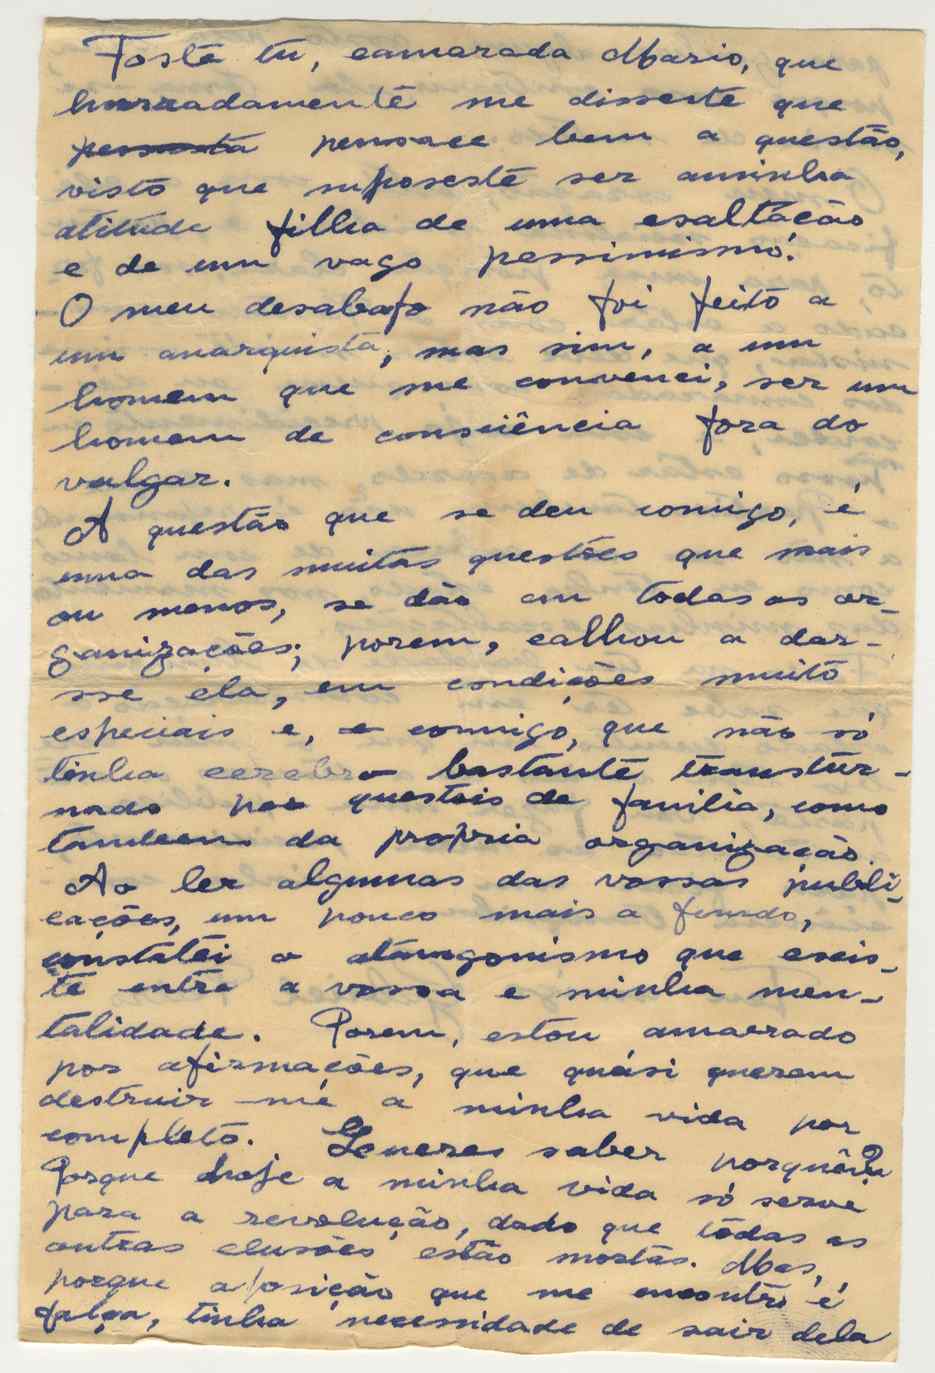 Foste tu, camarada Mario, que
honradamente me disseste que
pensasta pensace bem a questão,
visto que suposeste ser aminha
atitude filha de uma esaltação
e de um vago pessimismo.
O meu desabafo não foi feito a
um anarquista, mas sim, a um
homem que me convenci, ser um
homem de consciência fora do
vulgar.
A questão que se deu comigo, é
uma das muitas questões que mais
ou menos, se dão em todas as or-
ganizações; porem, calhou a dar-
sse éla, em condições muito
especiais e, e comigo, que não só
tinha cerebro bastante transtur-
nado por questois de familia, como
tambem da propria organização.
Ao ler algumas das vossas publi-
cações, um pouco mais a fundo,
constatei o antagonismo que exis-
te entre a vossa e minha men-
talidade. Porem, estou amarrado
por afirmações, que quási querem
destruir-me a minha vida por
completo. Queres saber porquê?
Porque hoje a minha vida só serve
para a revolução, dado que tôdas as
outras elusões, estão mortas. Mas,
porque aposição que me encontro é
falça, tinha necessidade de sair dela